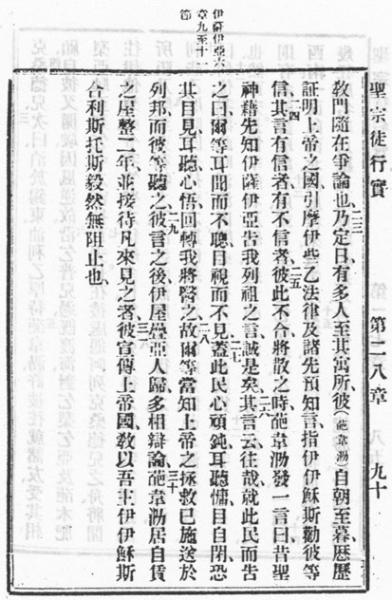 聖宗徒行實 第二八章 九十
伊薩伊亞六
章九至十一
節
教門隨在爭論也、二三乃定日、有多人至其寓所、彼(葩韋泐)自朝至暮、歷歷
証明上帝之國、引摩伊些乙法律及諸先預知言、指伊伊穌斯勸彼等
信、二四其言有信者、有不信者、二五彼此不合、將散之時、葩韋泐發一言曰、昔聖
神藉先知伊薩伊亞告我列祖之言誠是矣、二六其言云、往哉、就此民而告
之曰、爾等耳聞而不聽、目視而不見、二七蓋此民心頑鈍、耳聽慵、目自閉、恐
其目見耳聽心悟回轉、我將醫之、二八故爾等當知上帝之拯救已施送於
列邦、而彼等聽之、二九彼言之後、伊屋疊亞人歸、多相辯論、三十葩韋泐居自賃
之屋整二年、並接待凡來見之者、三一彼宣傳上帝國、教以吾主伊伊穌斯
合利斯托斯、毅然無阻止也、